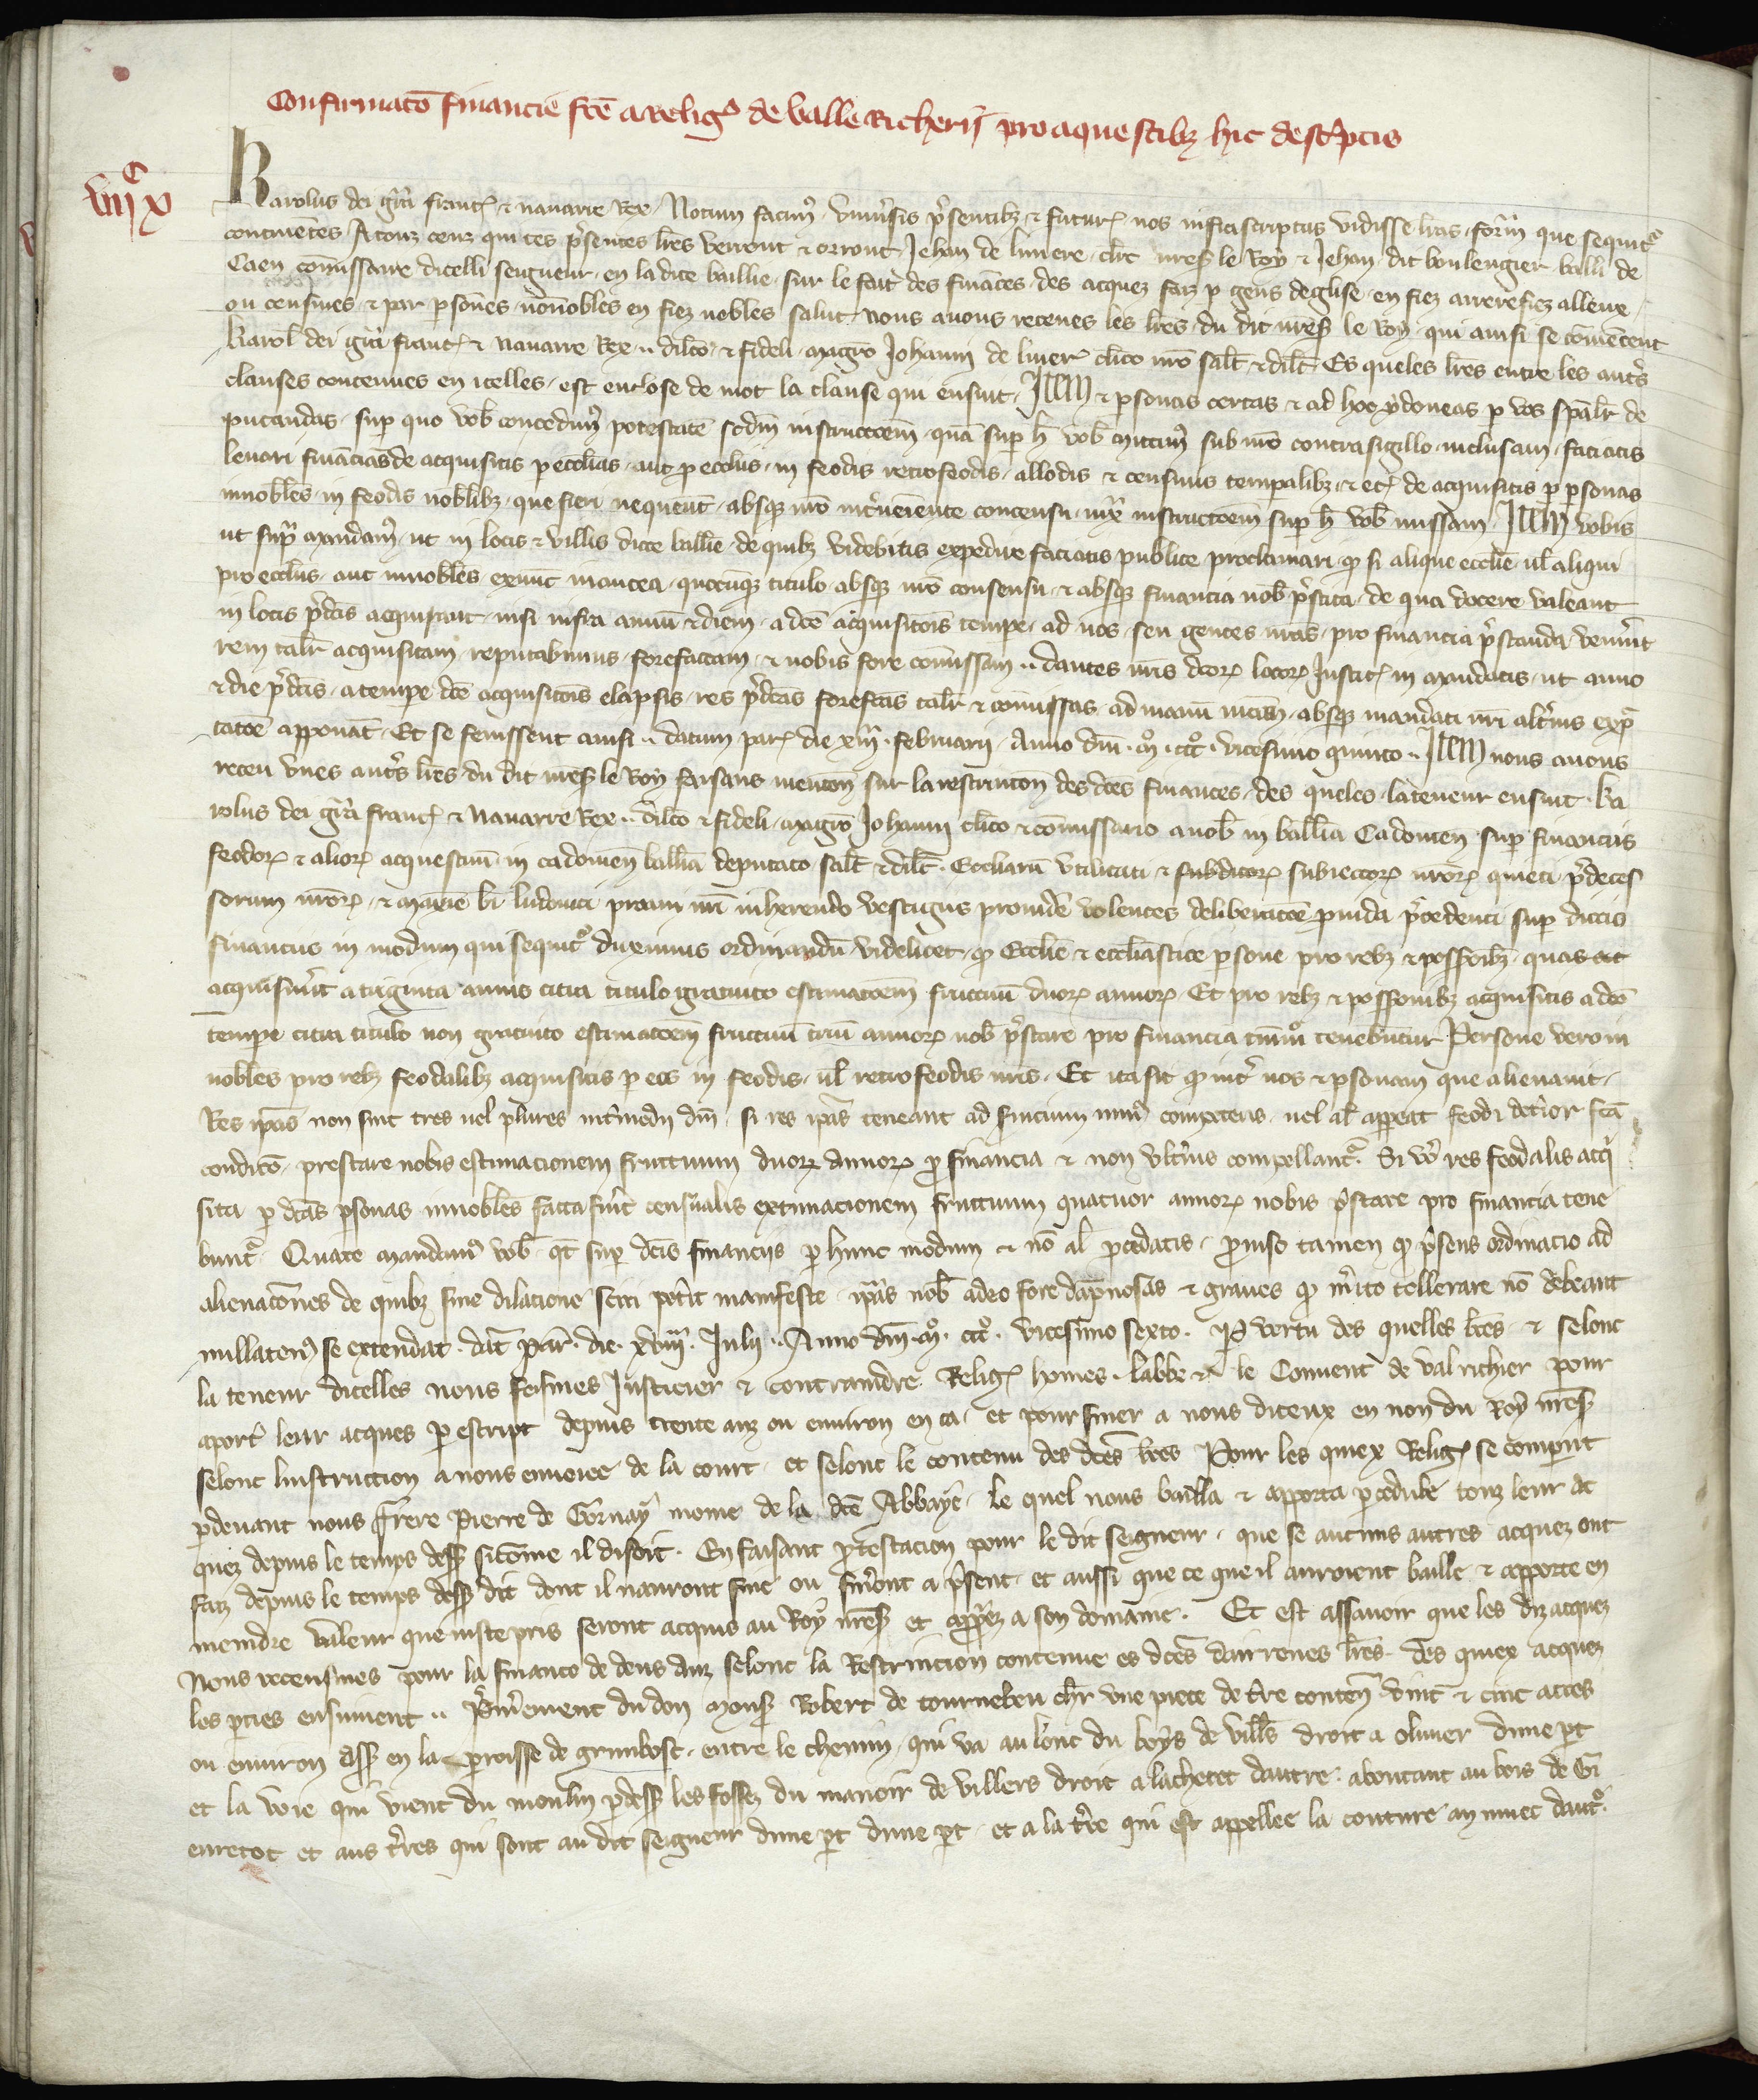 Confirmatō financie fcē a relig⁹ de valle Richerii pro aquestibȝ hic descᵖptis
viiᶜx
Karolus dei grā francꝝ & nauarre Rex Notum facimꝰ vniu̾sis p̾sentibȝ & futurꝝ nos infrascriptas vidisse lrās formā que sequitᷣ
continētes A touz ceuz qui ces p̾sentes lrēs verront & orront Jehan de liuiere clerc nr̄eſ le Roy & Jehan dit boulengier balli de
Caen cōmissaire dicelli seigneur en la dite baillie sur le fait des fināces des acquez faiz ꝑ gens deglise en fiez arrerefiez alleue
ou censiues & par ꝑsōnes nōnobles en fiez nobles salut nous auons receues les lrēs du dit nr̄eſ le Roy qui ainsi se cōmencent
Karol̄ dei grā francꝝ & nauarre Rex .. dilc̄o & fideli magrō Johanni de liuerꝝ clīco nrō salt̄ & dilc̄t Es queles lrēs entre les autrˢ
clauses contenues en icelles est enclose de mot la clause qui ensuit Itm̄ & ꝑsonas certas & ad hoc ydoneas ꝑ vos spālr̄ de
putandas suꝑ quo vob̄ concedimꝰ potestatē scdm̄ instructōem quā suꝑ h̄ vob̄ mittimꝰ sub nrō contrasigillo inclusam faciatis
leuari financias de acquisitis ꝑ ecclīas aut ꝓ ecclīis in feodis retrofeodis allodis & censiuis temꝑalibȝ & etꝝ de acquisitis ꝑ ꝑsonas
innobles in feodis nobilibȝ que fieri nequeūt absqȝ nrō int̾ueniente consensu iuxᵃ instructōem suꝑ h̄ vob̄ missam Itm̄ vobis
ut supᵃ mandamꝰ ut in locis & villis dicte balliē de quibȝ videbitis expedire faciatis publice proclamari ꝙ si alique ecclīe ul̄ aliqui
pro ecclīis aut innobiles exnūc inantea quocūqȝ titulo absqȝ nrō consensu & absqȝ financia nob̄ p̾stita de qua docere valeant
in locis p̾dc̄is acquirāt nisi infra annū & diem a dcē acquisitōis temꝑe ad nos seu gentes nrās pro financia p̾standa venerīt
rem talr̄ acquisitam reputabimus forefactam & nobis fore cōmissam .. dantes nrīs dcōrꝝ locorꝝ Justicꝝ in mandatis ut anno
& die p̾dc̄is a temꝑe dcē acquisitōis elapsis res p̾dc̄as forefcās talr̄ & cōmissas ad manū nrām absqȝ mandati nrī alt̾ius expᵉ
tatōe apponāt Et se fenissent ainsi .. datum parꝝ die xiijᵃ februarij Anno dn̄i mᵒ cccᵒ vicesimo quinto .. Itm̄ nous auons
receu vnes autrˢ lrēs du dit nr̄eſ le Roy faisans mencōn sur la restrincōn des dcēs finances des queles la teneur ensuit Ka
rolus dei grā francꝝ & Nauarre Rex .. dilc̄o & fideli magrō Johanni clīco & cōmissario a nob̄ in ballīa Cadomen̄ suꝑ financiis
feodorꝝ & aliorꝝ acquestuū in cadomen̄ ballīa deputato salt̄ & dilc̄t Ecclīarū vtilitati & subditorꝝ subiectorꝝ nrōrꝝ quieti p̾deces
sorum nrōrꝝ & maxīe bī ludouici proaui nrī inherendo vestigiis prouidē volentes deliberatōe ꝓuida p̾cedenti suꝑ dictis
financiis in modum qui sequitᷣ duximus ordinandū videlicet ꝙ Ecclīe & ecclīastice ꝑsone pro rebȝ & possōibȝ quas
acquisiuerīt a triginta annis citra titulo gratuito estimatōem fructuū duorꝝ annorꝝ Et pro rebȝ & possōnibȝ acquisitis a dcō
temꝑe citra titulo non gratuito estimatōem fructuū triū annorꝝ nob̄ p̾stare pro financia tn̄mᵒ tenebuntur Persone vero in
nobiles pro rebȝ feodalibȝ acquisitis ꝑ eos in feodis ul̄ retrofeodis nrīs Et ita sit ꝙ int̾ nos & ꝑsonam que alienauit
Res ip̄as non sint tres uel plures int̾medij dn̄i si res ip̄as teneant ad seruitium minꝰ competens uel al̄ appeat feodi det̾ior fcā
conditō prestare nobis estimacionem fructuum duorꝝ annorꝝ ꝓ financia & non vlt̾ius compellantᷣ Si vᵒ res feodalis acqⁱ
sita ꝑ dcās ꝑsonas innobiles facta fu̾it censualis extimacionem fructuum quatuor annorꝝ nobis p̾stare pro financia tene
buntᷣ Quare mandamꝰ vob̄ qt̄ suꝑ dcīs financijs ꝑ hunc modum & nō al̄ ꝓcedatis ꝓuiso tamen ꝙ p̾sens ordinacio ad
alienatōnes de quibȝ sine dilacione sciri pot̾it manifeste ip̄as nob̄ adeo fore dāpnosas & graues ꝙ m̾ito tollerare nō debeant
nullatenꝰ se extendat dat̄ Par̄ die xviijᵃ Julij .. Anno dn̄i mᵒ cccᵒ vicesimo sexto ꝑ vertu des quelles lrēs & selonc
la teneur dicelles nous feismes Justicier & contraindre Religꝝ homes labbe & le Conuent de Valrichier pour
aport̾ leur acques ꝑ escript depuis trente anz ou enuiron en ca et pour finer a nous diceux en non du Roy nr̄eſ
selonc linstruction a nous enuoiee de la court et selonc le contenu des dcēs lrēs Pour les quiex Religꝝ se comperut
ꝑdeuant nous Frere Pierre de Gornay moine de la dcē Abbaye le quel nous bailla & apporta ꝑ cedule touz leur ac
quez depuis le temps dessꝰ sicōme il disoit En faisant ꝓtestacion pour le dit seigneur que se aucuns autres acquez ont
faiz depuis le temps dessꝰ dit dont il nauront finé ou fineront a p̾sent et aussi que ce que il auroient baillé & apporte en
meindre valeur que iuste pris seront acquis au Roy nr̄eſ et appᵖez a son domaine Et est assauoir que les diz acquez
Nous receusmes pour la finance de deus anz selonc la Restrincion contenue es dcēs dairrenes lrēs des quiex acquez
les ꝑties ensuiuent .. Prem̾ement du don monſ Robert de tournebeu chr̄ vne piece de t̾re conten̄ vint & cinc acres
ou enuiron assꝰ en la ꝑoisse de grimbosc entre le chemin qui va au lonc du boys de vill̾s droit a oliuier dune ꝑt
et la voie qui vient du moulin ꝑdessꝰ les fossez du manoir de villers droit a lachetet dautre aboutant au bois de Gi
enretot et aus t̾res qui sont au dit seigneur dune ꝑt dune ꝑt et a la t̾re qui est appellee la couture daut̾